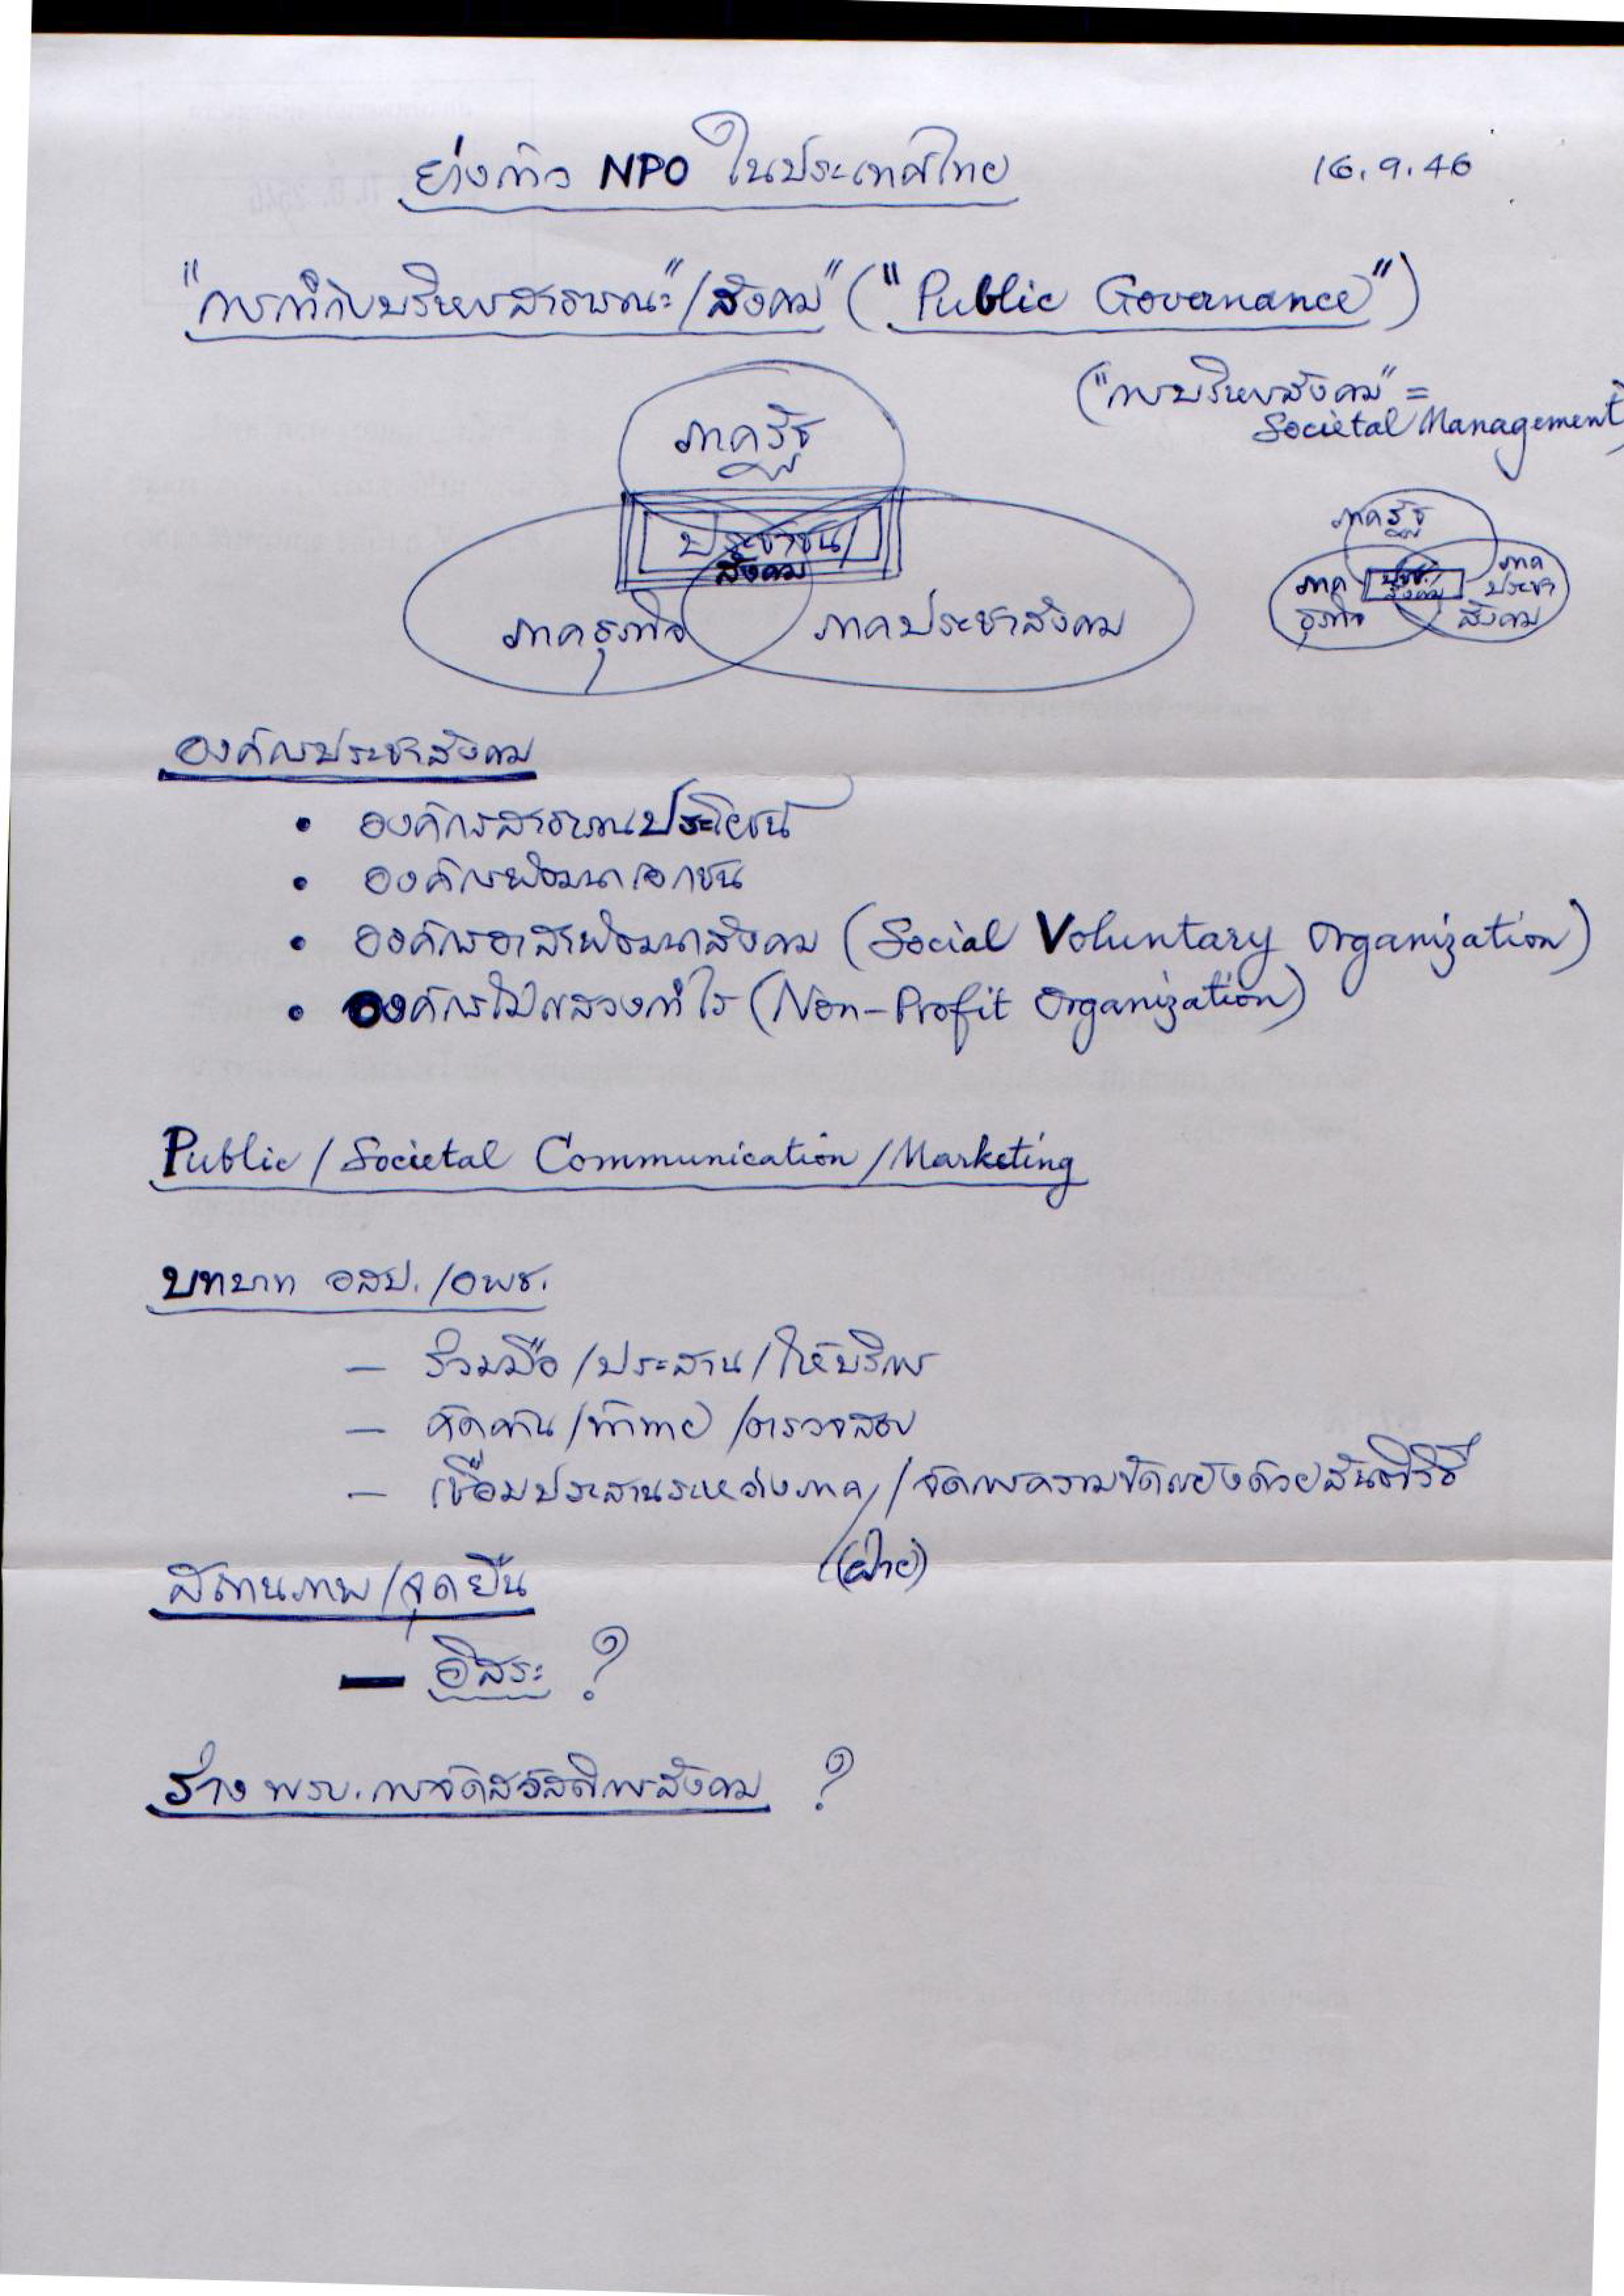 ย่างก้าว NPO ในประเทศไทย
16.9.46
"การกำกับบริหารสาธารณะ"/สังคม" ("Public Governance")
("การบริหารสังคม" =
Societal Management)
ภาครัฐ
ประชาชน/
สังคม
ภาคธุรกิจ
ภาคประชาสังคม
ภาครัฐ
ภาค
ธุรกิจ
ปชช./
สังคม
ภาค
ประชา
สังคม
องค์กรประชาสังคม
• องค์กรสาธารณประโยชน์
• องค์กรพัฒนาเอกชน
• องค์กรอาสาพัฒนาสังคม (Social Voluntary Organization)
• องค์กรไม่แสวงกำไร (Non-Profit Organization)
Public / Societal Communication / Marketing
บทบาท อสป. /อพช.
– ร่วมมือ /ประสาน / ให้บริการ
– คัดค้าน /ท้าทาย /ตรวจสอบ
– เชื่อมประสานระหว่างภาค / จัดการความขัดแย้งด้วยสันติวิธี
(ฝ่าย)
สถานภาพ /จุดยืน
– อิสระ ?
ร่าง พรบ. การจัดสวัสดิการสังคม ?